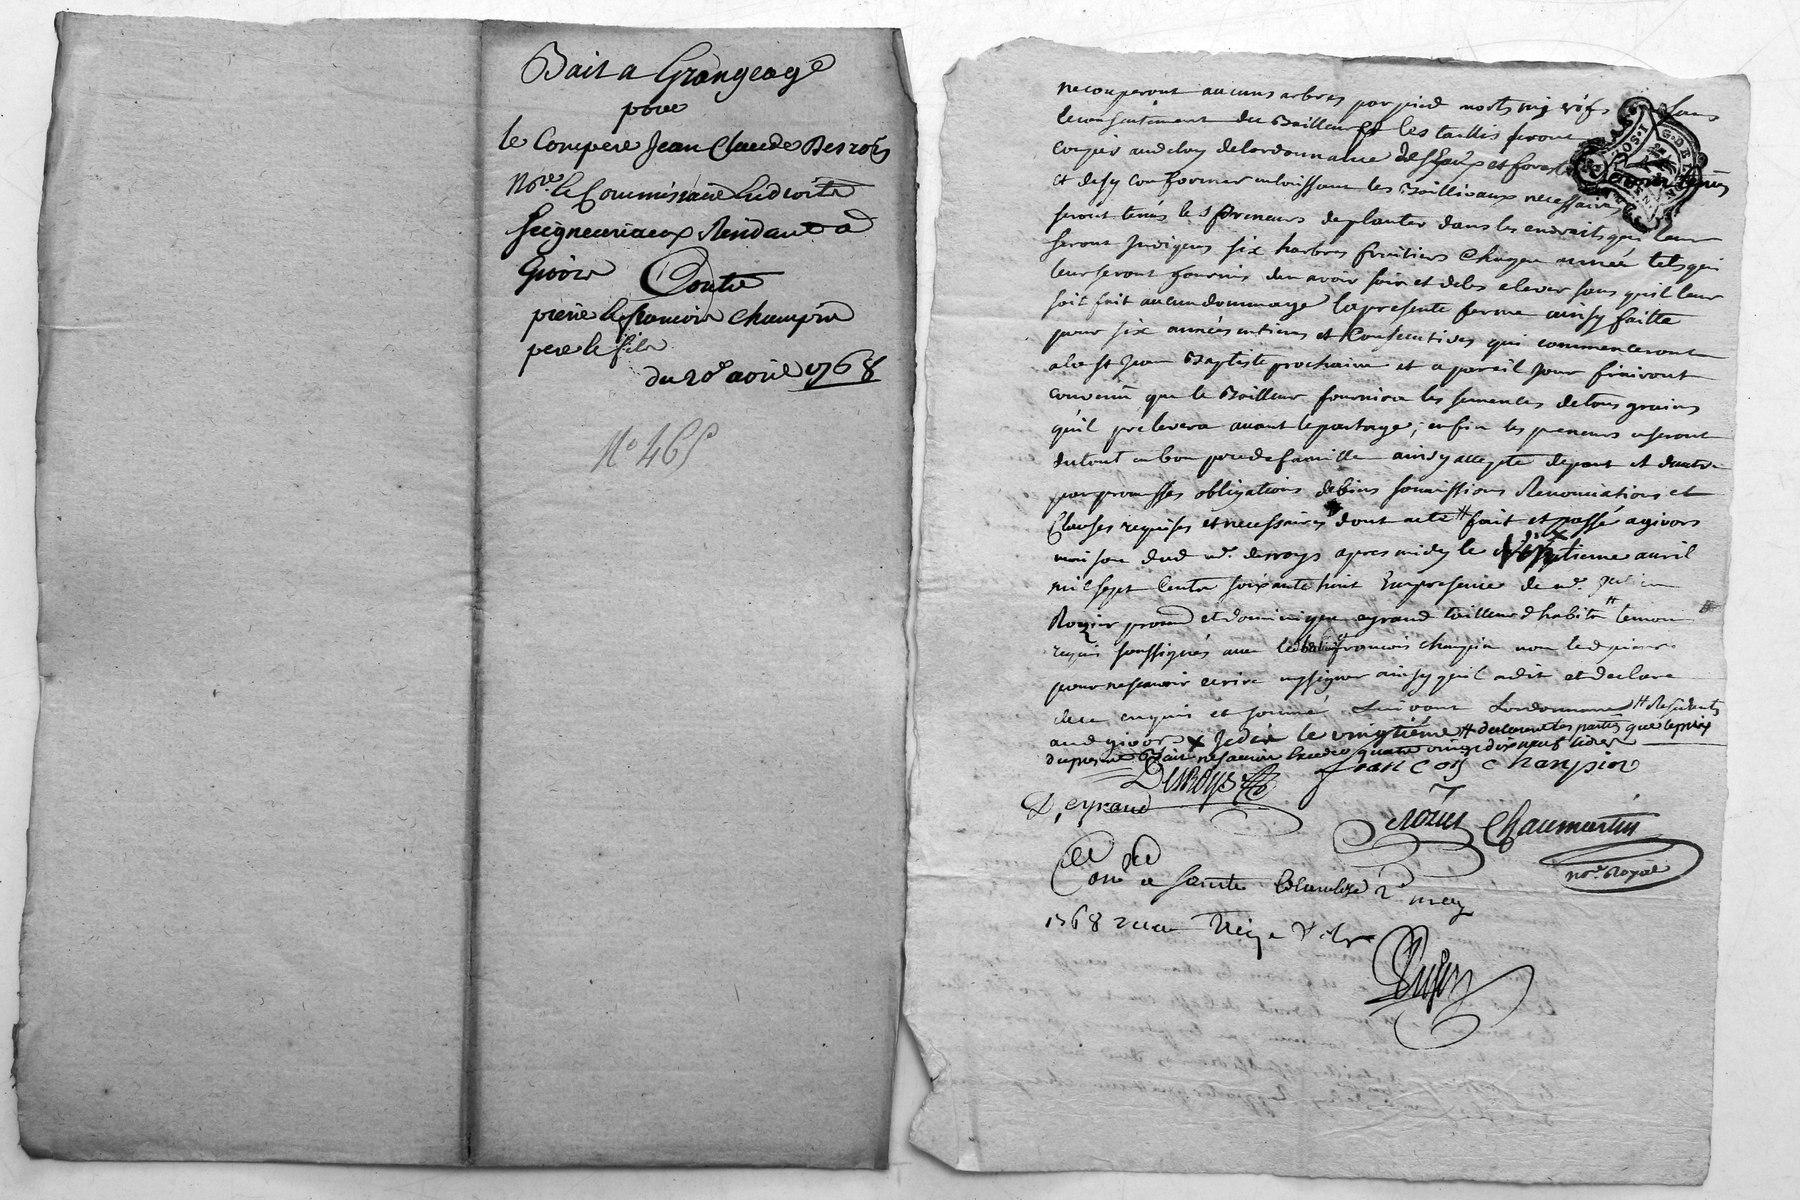 Bail a Grangeage
pour
le Compere Jean Claude Desrois
No.re & Commissaire En droits
seigneuriaux Residant a
Givors Contre
pierre & francois champin
pere & fils
du 20e avril 1768
No 465
ne couperont aucuns arbres par pied morts ny vifs sans
le consentement du Bailleur et les taillis seront
coupés au desir de lordonnance des Eaux et forets
et de sy conformer en laissant les Baillivaux necessaires
seront tenus les preneurs de planter dans les endroits qui leur
seront indiqués six harbres fruitiers chaque année tels qui
leur seront fournis den avoir soin et de les elever sans quil leur
soit fait aucun dommage la presente ferme ainsy faitte
pour six années entieres et Consecutives qui commenceront
a la st Jean Baptiste prochaine et a pareil jour finiront
convenu que le Bailleur fournira les semences de tous grains
quil prelevera avant le partage ; enfin les preneurs useront
du tout en bon pere de famille ainsy accepte de part et dautre
par promesses obligations de biens soumissions Renonciations et
Clauses requises et necessaires dont acte # fait et passé a givors
maison dud. sr. desroys apres midy le vingtieme avril
mil sept Cents soixante huit En presence de sr.
Rozier et dominique eyraud tailleur dhabits # temoins
requis soussignés avec led. francois champin non led. pierre
pour ne scavoir ecrire ny signer ainsy quil a dit et declaré
de ce enquis et sommé suivant Lordonnance # Residants
aud. givors x Je dis le vingtieme # declarant les parties que le prix
du present Bail ne scauroit Exceder quatre vingt dix neuf livres
Desroys francois champin
D, eyraud
Rozier Chaumartin
no.re Royal
Con.lé a sainte Colombe le 2e may
1768 recu Treize s.